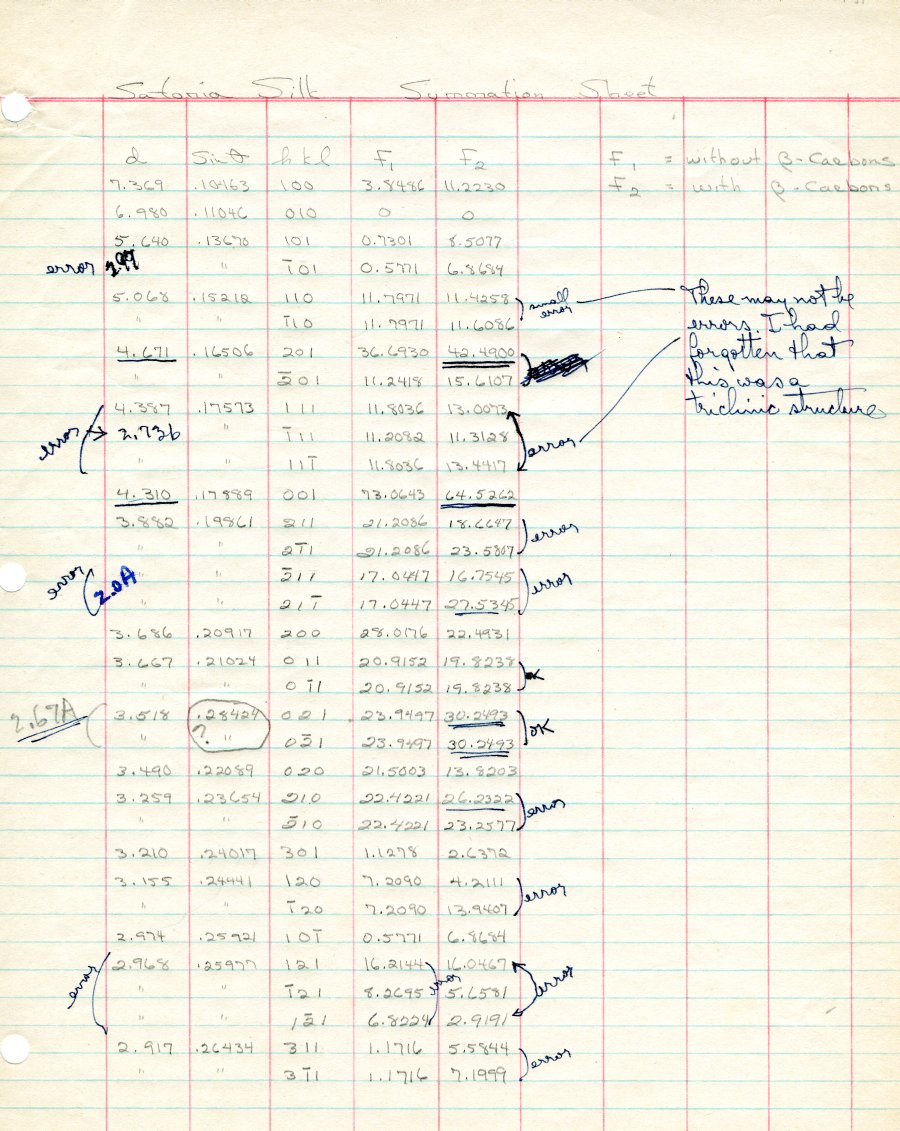 Satonia Silk Summation Sheet
d Sinθ hkl F₁ F₂ F₁ = without β-Carbons
7.369 .10463 100 3.8486 11.2230 F₂ = with β-Carbons
6.980 .11046 010 0 0
5.640 .13670 101 0.7301 8.5077
error 2.97 " 1̄01 0.5771 6.8684
5.068 .15212 110 11.7971 11.4258 small error These may not be
" " 1̄10 11.7971 11.6086 errors. I had
4.671 .16506 201 36.6930 42.4900 forgotten that
" " 2̄01 11.2418 15.6107 this was a
4.387 .17573 111 11.8036 13.0073 triclinic structure
error 2.736 " 1̄11 11.2082 11.3128 error
" " 111̄ 11.8036 13.4417
4.310 .17889 001 73.0643 64.5262
3.882 .19861 211 21.2086 18.6647 error
" " 21̄1 21.2086 23.5807
error 2.0A " " 2̄11 17.0447 16.7545 error
" " 211̄ 17.0447 27.5345
3.686 .20917 200 28.0176 22.4931
3.667 .21024 011 20.9152 19.8238 OK
" " 01̄1 20.9152 19.8238
2.67A 3.518 .28424 021 23.9497 30.2493 OK
" ? " 02̄1 23.9497 30.2493
3.490 .22089 020 21.5003 13.8203
3.259 .23654 210 22.4221 26.2322 error
" " 2̄10 22.4221 23.2577
3.210 .24017 301 1.1278 2.6372
3.155 .24441 120 7.2090 4.2111 error
" " 1̄20 7.2090 13.9407
2.974 .25921 101̄ 0.5771 6.8684
error 2.968 .25977 121 16.2144 error 16.0467 error
" " 1̄21 8.2695 5.6581
" " 12̄1 6.8224 2.9191
2.917 .26434 311 1.1716 5.5844 error
" " 31̄1 1.1716 7.1999